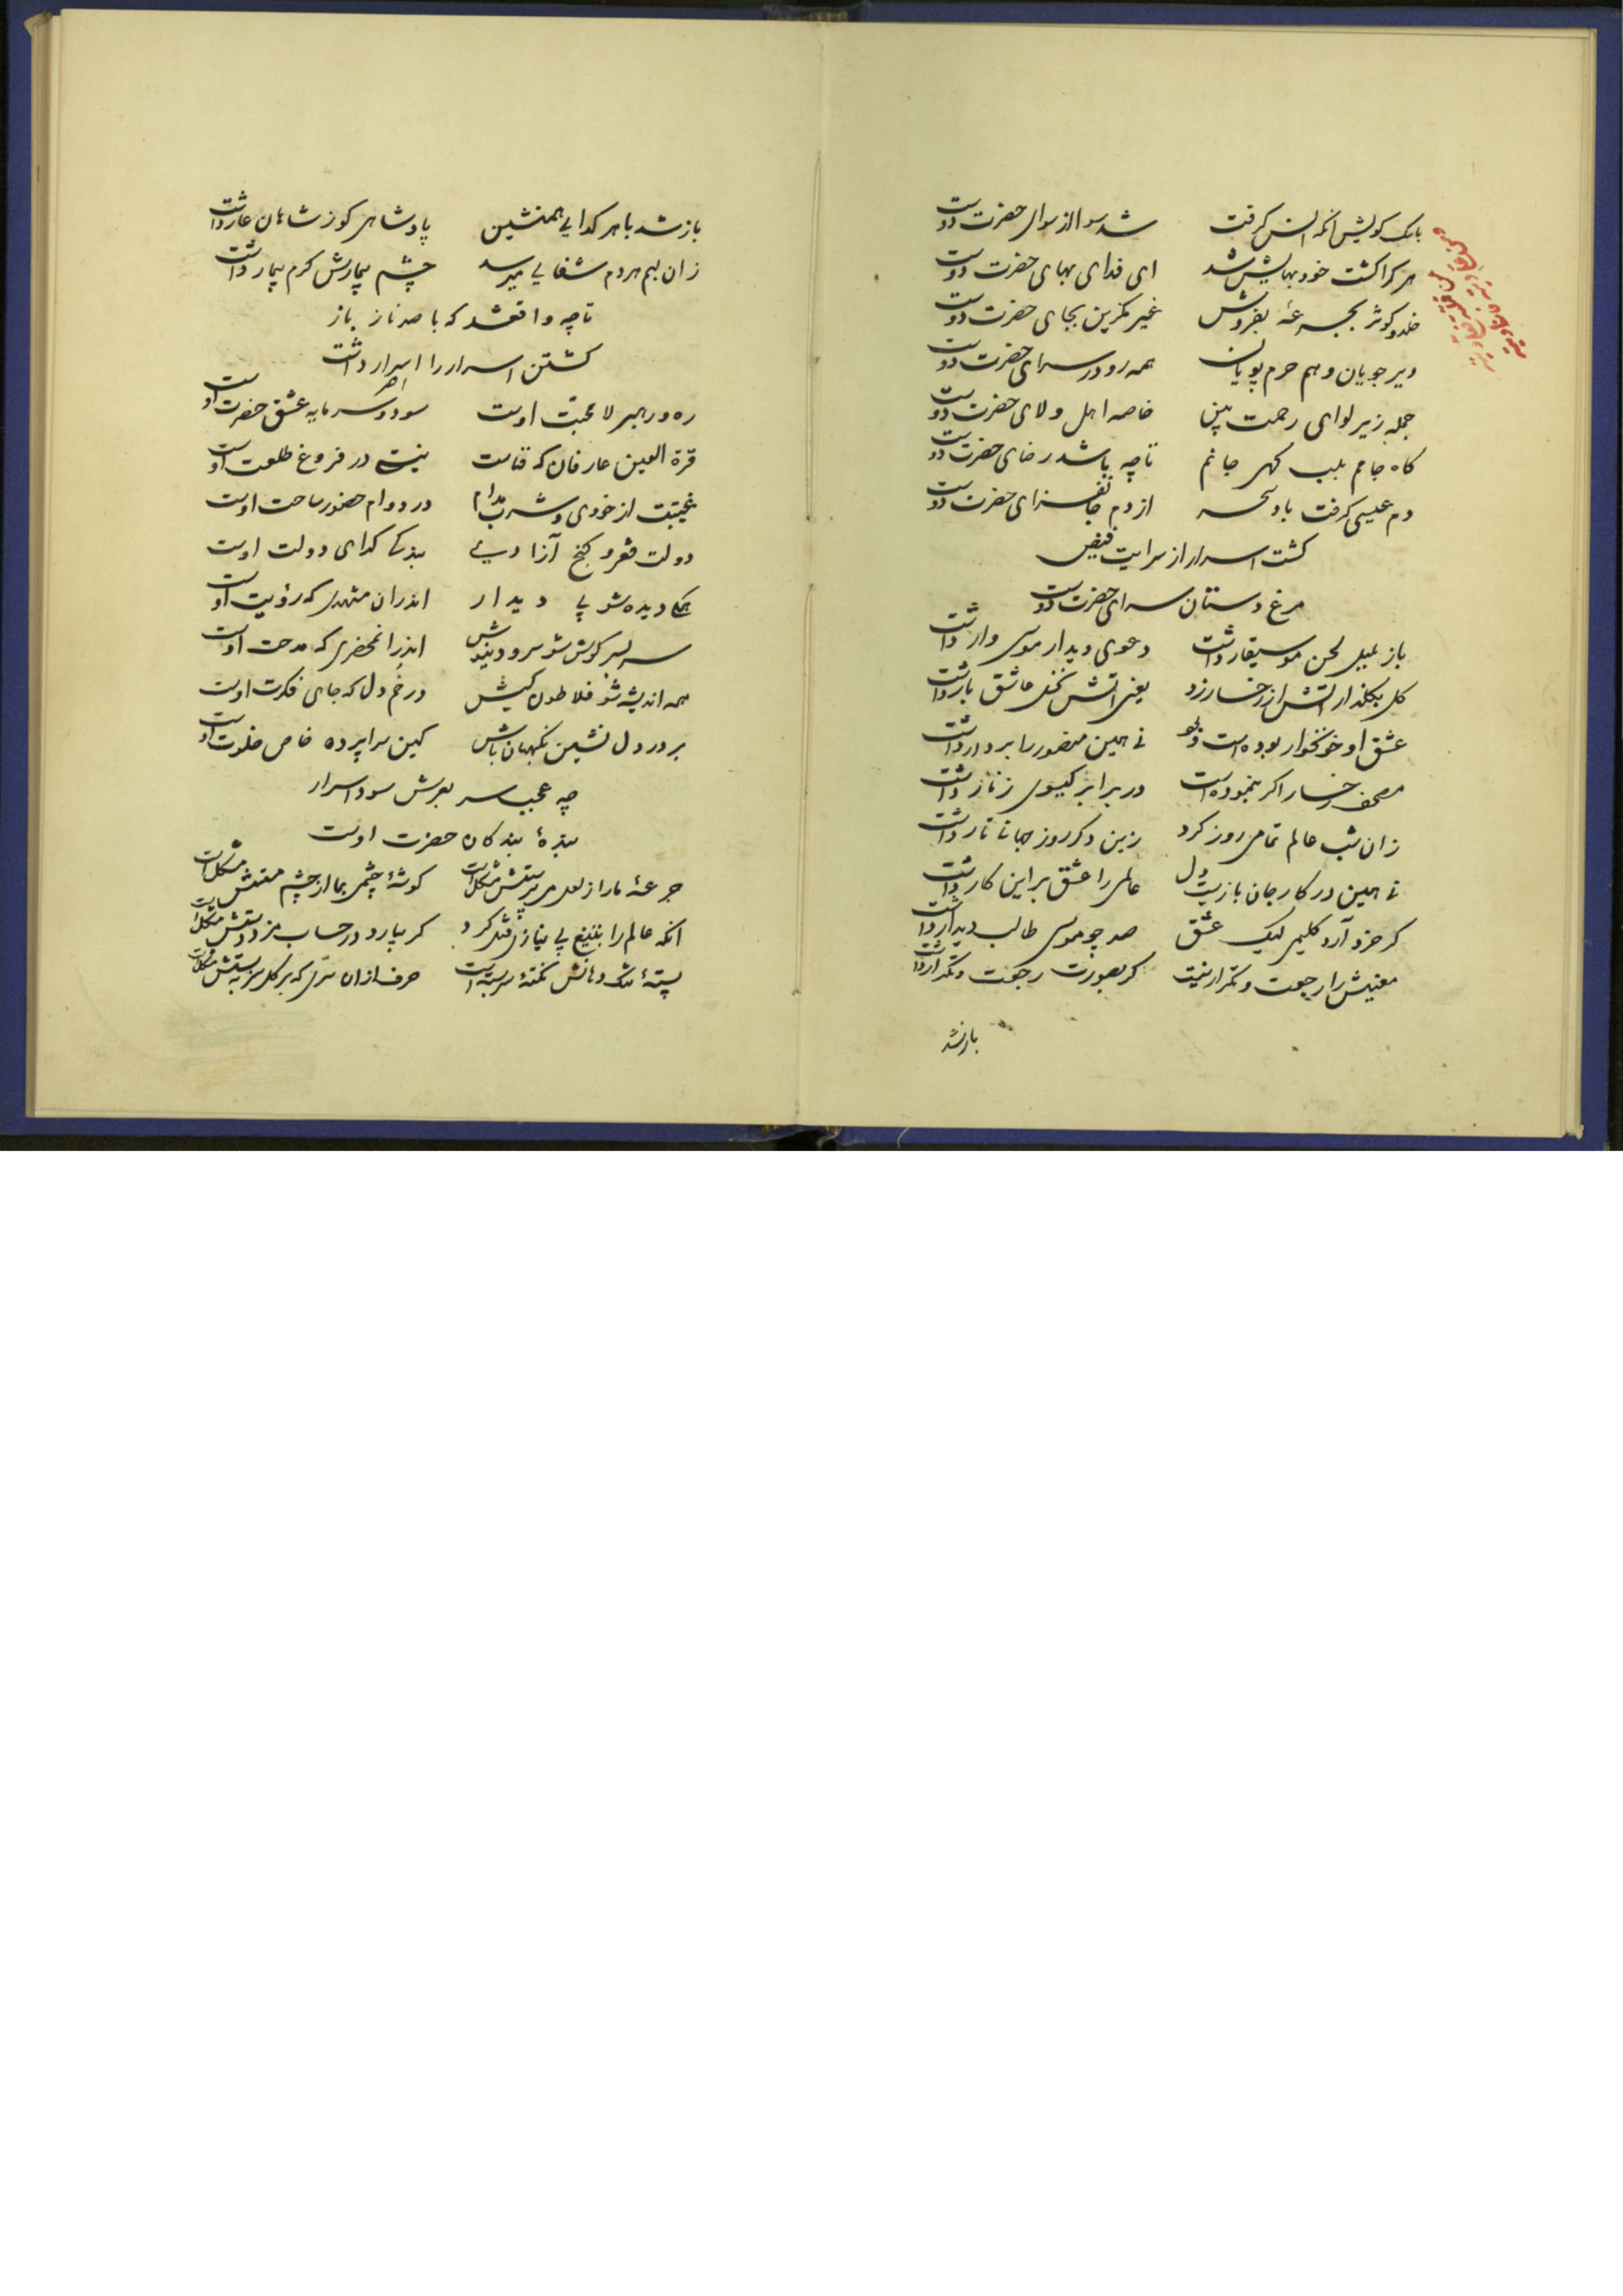 با سگ کویش انکه انس گرفت شد سوا از سوای حضرت دوست
هر کرا کشت خود بهایش شد ای فدای بهای حضرت دوست
خلد و کوثر بجرعهٔ بفروش غیر مگزین بجای حضرت دوست
دیر جویان و هم حرم پویان همه رو در سرای حضرت دوست
جمله زیر لوای رحمت بین خاصه اهل ولای حضرت دوست
گاه جامم بلب گهی جانم تا چه باشد رضای حضرت دوست
دم عیسی گرفت باد سحر از دم جانفزای حضرت دوست
گشت اسرار از سرایت فیض
مرغ دستان سرای حضرت دوست
باز بلبل لحن موسیقار داشت دعوی دیدار موسی وار داشت
گل بگلذار اتش از رخسار زد یعنی اتش نخل عاشق بار داشت
عشق او خونخوار بوده است نی همین منصور را بر دار داشت
مصحف رخسار اگر بنموده است در برابر گیسوی زنار داشت
زان شب عالم تمامی روز کرد زین دگر روز جهانی تار داشت
نی همین در کار جان بازیست دل عالمی را عشق بر این کار داشت
گر خرد آرد کلیمی لیک عشق صد چو موسی طالب دیدار داشت
معنیش را رجعت و تکرار نیست گر بصورت رجعت و تکرار داشت
باز شد
باز شد با هر گدایی همنشین پادشاهی کو ز شاهان عار داشت
زان لبم هر دم شفایی میرسد چشم بیمارش گرم بیمار داشت
تا چه واقعشد که با صد ناز باز
کشتن اسرار را اسرار داشت
ره و رهبر لا محبت اوست سود و سرمایه عشق حضرت اوست
قرة العین عارفان که فناست نیستی در فروغ طلعت اوست
غیبتت از خودی و شرب مدام در دوام حضور ساحت اوست
دولت فقر و گنج آزادیی بندگی گدای دولت اوست
همگی دیده شو پی دیدار اندران مشهدی که رؤیت اوست
سر بسر گوش شو سرود نیوش اندرانمحضری که مدحت اوست
همه اندیشه شو فلاطون کیش در خم دل که جای فکرت اوست
بر در دل نشین نگهبان باش کین سراپرده خاص خلوت اوست
چه عجب سر بعرش سود اسرار
بندهٔ بندگان حضرت اوست
جرعهٔ ما را از لعل می پرستش مشکل است گوشهٔ چشمی بما از چشم مستش مشکل است
انکه عالم را بتیغ بی نیازی قتل کرد گر بیارد در حساب مزد دستش مشکل است
پستهٔ تنگ دهانش نکتهٔ سربسته است حرف ازان سری که بر گل مشکل است